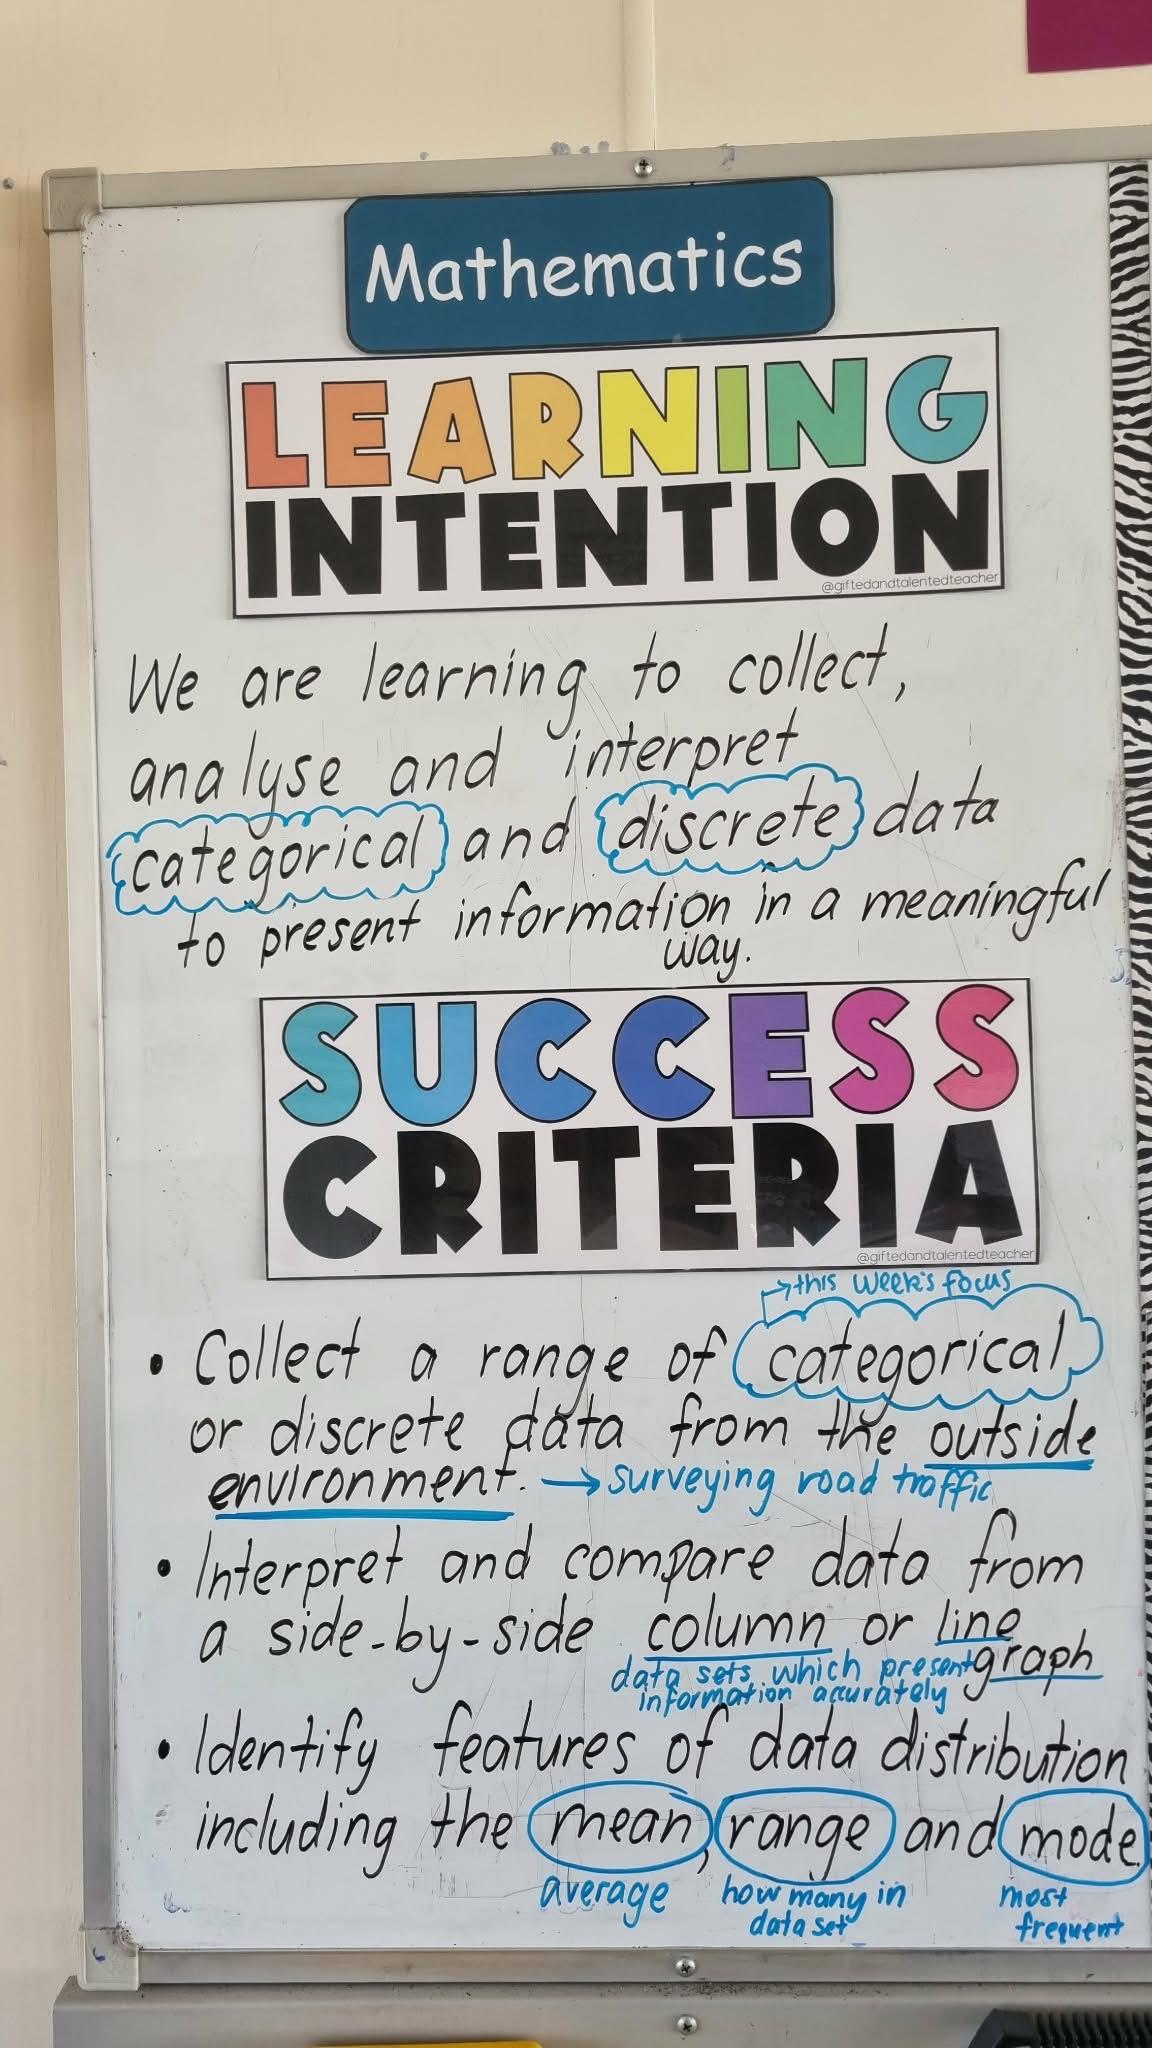 Mathematics
LEARNING
INTENTION
@giftedandtalentedteacher
We are learning to collect,
analyse and interpret
categorical and discrete data
to present information in a meaningful
way.
SUCCESS
CRITERIA
@giftedandtalentedteacher
→this week's focus
• Collect a range of categorical
or discrete data from the outside
environment. → surveying road traffic
• Interpret and compare data from
a side-by-side column or line
graph
data sets which present
information accurately
• Identify features of data distribution
including the mean, range and mode
average
how many in
data set
most
frequent